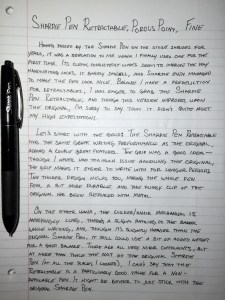 Sharpie Pen Retractable, Porous Point, Fine
Having passed by the Sharpie Pen on the store shelves for
years, it was a surprise to me when I finally used one for the
first time. Its clean, consistent lines seem to make me my
handwriting look, it barely smells, and Sharpie even managed
to make the pen look nice. Because I have a predilection
for retractables, I was eager to grab the Sharpie
Pen Retractable, and though this version improves upon
the original, I'm sorry to say that it didn't quite meet
my high expectations.
Let's start with the good: The Sharpie Pen Retractable
has the same great writing performance as the original,
adding a couple great features. The grip was a good idea—
though I never had too much issue handling the original,
the grip makes it easier to write with for longer periods.
The thicker design helps too, making the whole pen
feel a bit more durable and the flimsy clip of the
original has been replaced with metal.
On the other hand, the click/knock mechanism is
apparently loud, there's a slight rattling in the barrel
while writing, and, though it's slightly heavier than the
original Sharpie Pen, it still could use a bit of added heft
for a good balance. These are all very minor complaints, but
at more than twice the cost of the original Sharpie
Pen (at all the stores I looked), I can't say that the
Retractable is a particularly good value for a non-
refillable pen. It might be better to just stick with the
original Sharpie Pen.